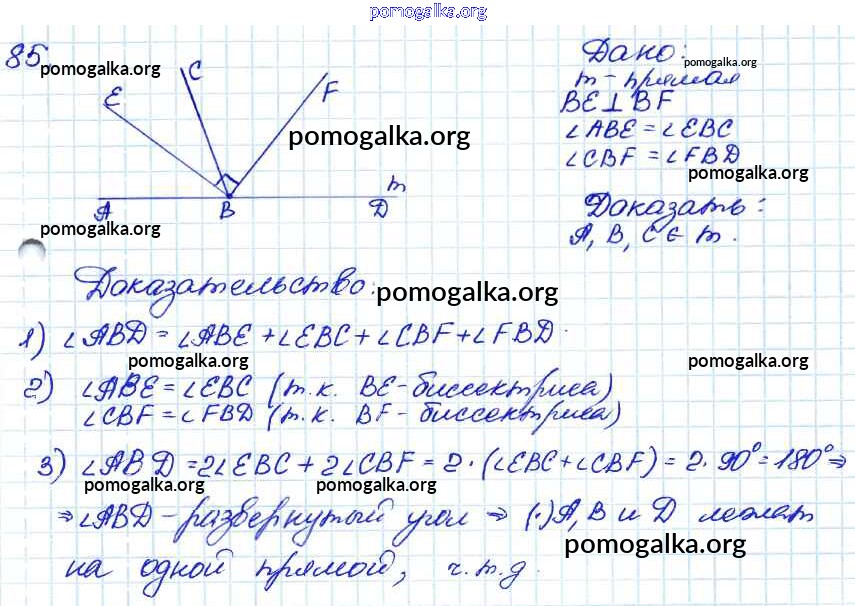 pomogalka.org
85.
pomogalka.org
E
C
F
pomogalka.org
A
B
D
m
pomogalka.org
Дано:
pomogalka.org
m - прямая
BE ⊥ BF
∠ABE = ∠EBC
∠CBF = ∠FBD
pomogalka.org
Доказать:
A, B, C ∈ m.
Доказательство:
pomogalka.org
1) ∠ABD = ∠ABE + ∠EBC + ∠CBF + ∠FBD.
pomogalka.org pomogalka.org
2) ∠ABE = ∠EBC (т.к. BE - биссектриса)
∠CBF = ∠FBD (т.к. BF - биссектриса)
3) ∠ABD = 2∠EBC + 2∠CBF = 2·(∠EBC + ∠CBF) = 2·90° = 180° ⇒
pomogalka.org pomogalka.org
⇒ ∠ABD - развернутый угол ⇒ (·) A, B и D лежат
pomogalka.org
на одной прямой, ч.т.д.